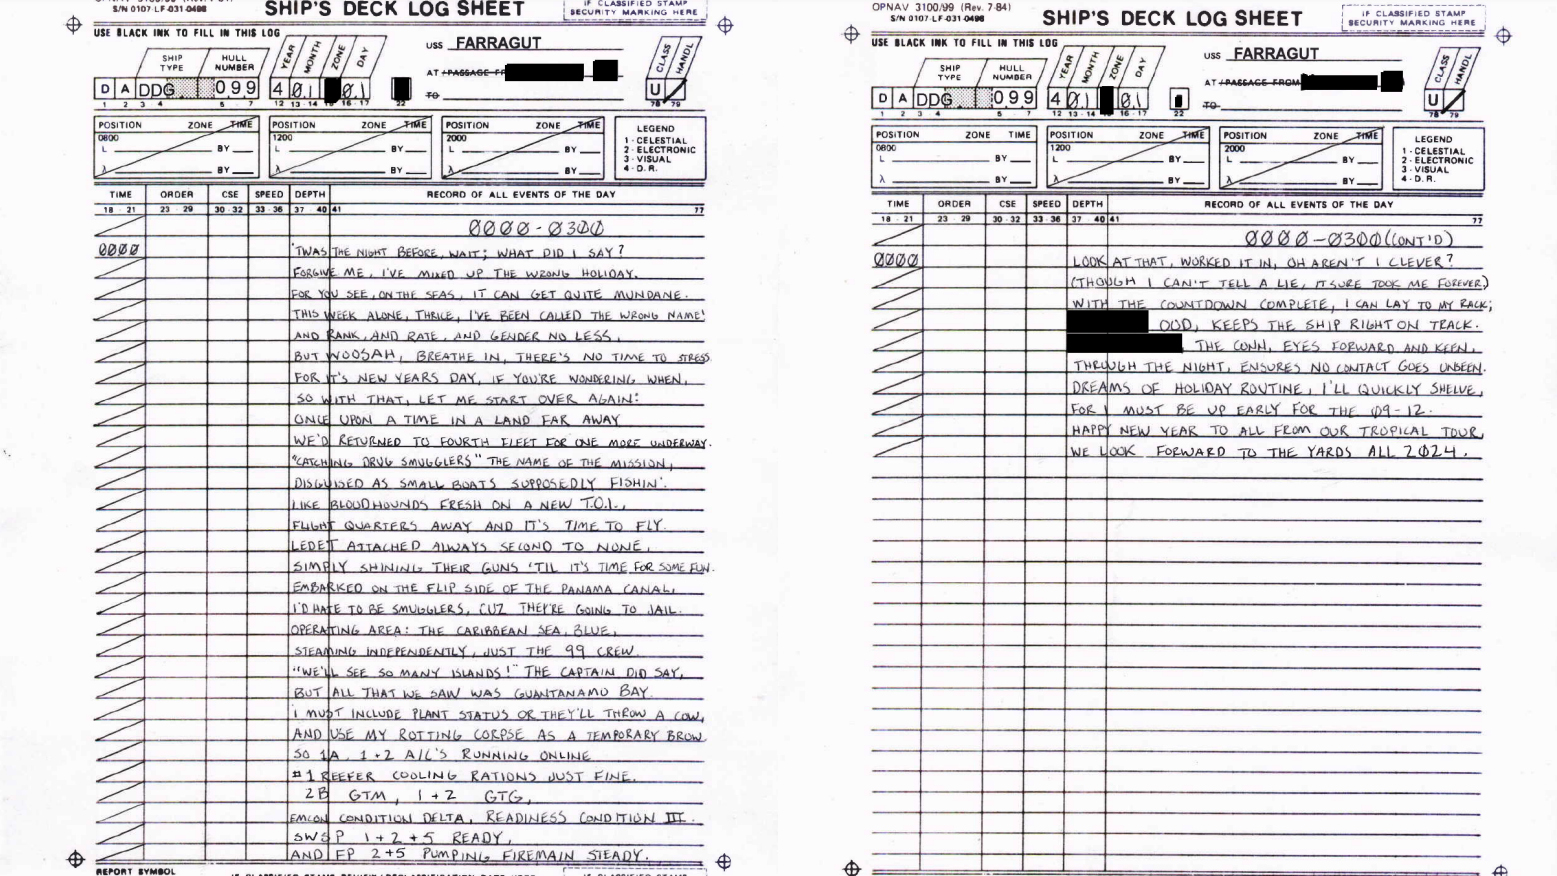 OPNAV 3100/99 (Rev. 7-84)
S/N 0107-LF-031-0498
SHIP'S DECK LOG SHEET
IF CLASSIFIED STAMP
SECURITY MARKING HERE
USE BLACK INK TO FILL IN THIS LOG
USS FARRAGUT
SHIP TYPE
HULL NUMBER
YEAR
MONTH
ZONE
DAY
CLASS
HANDL
AT / PASSAGE FR
TO
D A DDG 099 4 01 01 U
1 2 3 4 5 - 7 12 13-14 15 16-17 22 78 79
POSITION ZONE TIME
0800
L BY
λ BY
POSITION ZONE TIME
1200
L BY
λ BY
POSITION ZONE TIME
2000
L BY
λ BY
LEGEND
1 - CELESTIAL
2 - ELECTRONIC
3 - VISUAL
4 - D. R.
TIME ORDER CSE SPEED DEPTH RECORD OF ALL EVENTS OF THE DAY
18 - 21 23 - 29 30-32 33-36 37 40 41 77
0000-0300
0000 'TWAS THE NIGHT BEFORE, WAIT; WHAT DID I SAY?
FORGIVE ME, I'VE MIXED UP THE WRONG HOLIDAY.
FOR YOU SEE, ON THE SEAS, IT CAN GET QUITE MUNDANE.
THIS WEEK ALONE, THRICE, I'VE BEEN CALLED THE WRONG NAME!
AND RANK, AND RATE, AND GENDER NO LESS,
BUT WOOSAH, BREATHE IN, THERE'S NO TIME TO STRESS.
FOR IT'S NEW YEARS DAY, IF YOU'RE WONDERING WHEN,
SO WITH THAT, LET ME START OVER AGAIN:
ONCE UPON A TIME IN A LAND FAR AWAY
WE'D RETURNED TO FOURTH FLEET FOR ONE MORE UNDERWAY.
"CATCHING DRUG SMUGGLERS" THE NAME OF THE MISSION,
DISGUISED AS SMALL BOATS SUPPOSEDLY FISHIN'.
LIKE BLOODHOUNDS FRESH ON A NEW T.O.I.,
FLIGHT QUARTERS AWAY AND IT'S TIME TO FLY.
LEDET ATTACHED ALWAYS SECOND TO NONE,
SIMPLY SHINING THEIR GUNS 'TIL IT'S TIME FOR SOME FUN.
EMBARKED ON THE FLIP SIDE OF THE PANAMA CANAL,
I'D HATE TO BE SMUGGLERS, CUZ THEY'RE GOING TO JAIL.
OPERATING AREA: THE CARIBBEAN SEA, BLUE,
STEAMING INDEPENDENTLY, JUST THE 99 CREW.
"WE'LL SEE SO MANY ISLANDS!" THE CAPTAIN DID SAY,
BUT ALL THAT WE SAW WAS GUANTANAMO BAY.
I MUST INCLUDE PLANT STATUS OR THEY'LL THROW A COW,
AND USE MY ROTTING CORPSE AS A TEMPORARY BROW.
SO 1A, 1+2 A/C'S RUNNING ONLINE
#1 REEFER COOLING RATIONS JUST FINE.
2B GTM, 1+2 GTG,
EMCON CONDITION DELTA, READINESS CONDITION III.
SWSP 1+2+5 READY,
AND FP 2+5 PUMPING FIREMAIN STEADY.
REPORT SYMBOL
OPNAV 3100/99 (Rev. 7-84)
S/N 0107-LF-031-0498
SHIP'S DECK LOG SHEET
IF CLASSIFIED STAMP
SECURITY MARKING HERE
USE BLACK INK TO FILL IN THIS LOG
USS FARRAGUT
SHIP TYPE
HULL NUMBER
YEAR
MONTH
ZONE
DAY
CLASS
HANDL
AT / PASSAGE FROM
TO
D A DDG 099 4 01 01 U
1 2 3 4 5 - 7 12 13-14 16-17 22 78 79
POSITION ZONE TIME
0800
L BY
λ BY
POSITION ZONE TIME
1200
L BY
λ BY
POSITION ZONE TIME
2000
L BY
λ BY
LEGEND
1 - CELESTIAL
2 - ELECTRONIC
3 - VISUAL
4 - D. R.
TIME ORDER CSE SPEED DEPTH RECORD OF ALL EVENTS OF THE DAY
18 - 21 23 - 29 30-32 33-36 37 40 41 77
0000-0300 (CONT'D)
0000 LOOK AT THAT, WORKED IT IN, OH AREN'T I CLEVER?
(THOUGH I CAN'T TELL A LIE, IT SURE TOOK ME FOREVER.)
WITH THE COUNTDOWN COMPLETE, I CAN LAY TO MY RACK;
OOD, KEEPS THE SHIP RIGHT ON TRACK.
THE CONN, EYES FORWARD AND KEEN,
THROUGH THE NIGHT, ENSURES NO CONTACT GOES UNSEEN.
DREAMS OF HOLIDAY ROUTINE, I'LL QUICKLY SHELVE,
FOR I MUST BE UP EARLY FOR THE 09-12.
HAPPY NEW YEAR TO ALL FROM OUR TROPICAL TOUR,
WE LOOK FORWARD TO THE YARDS ALL 2024.